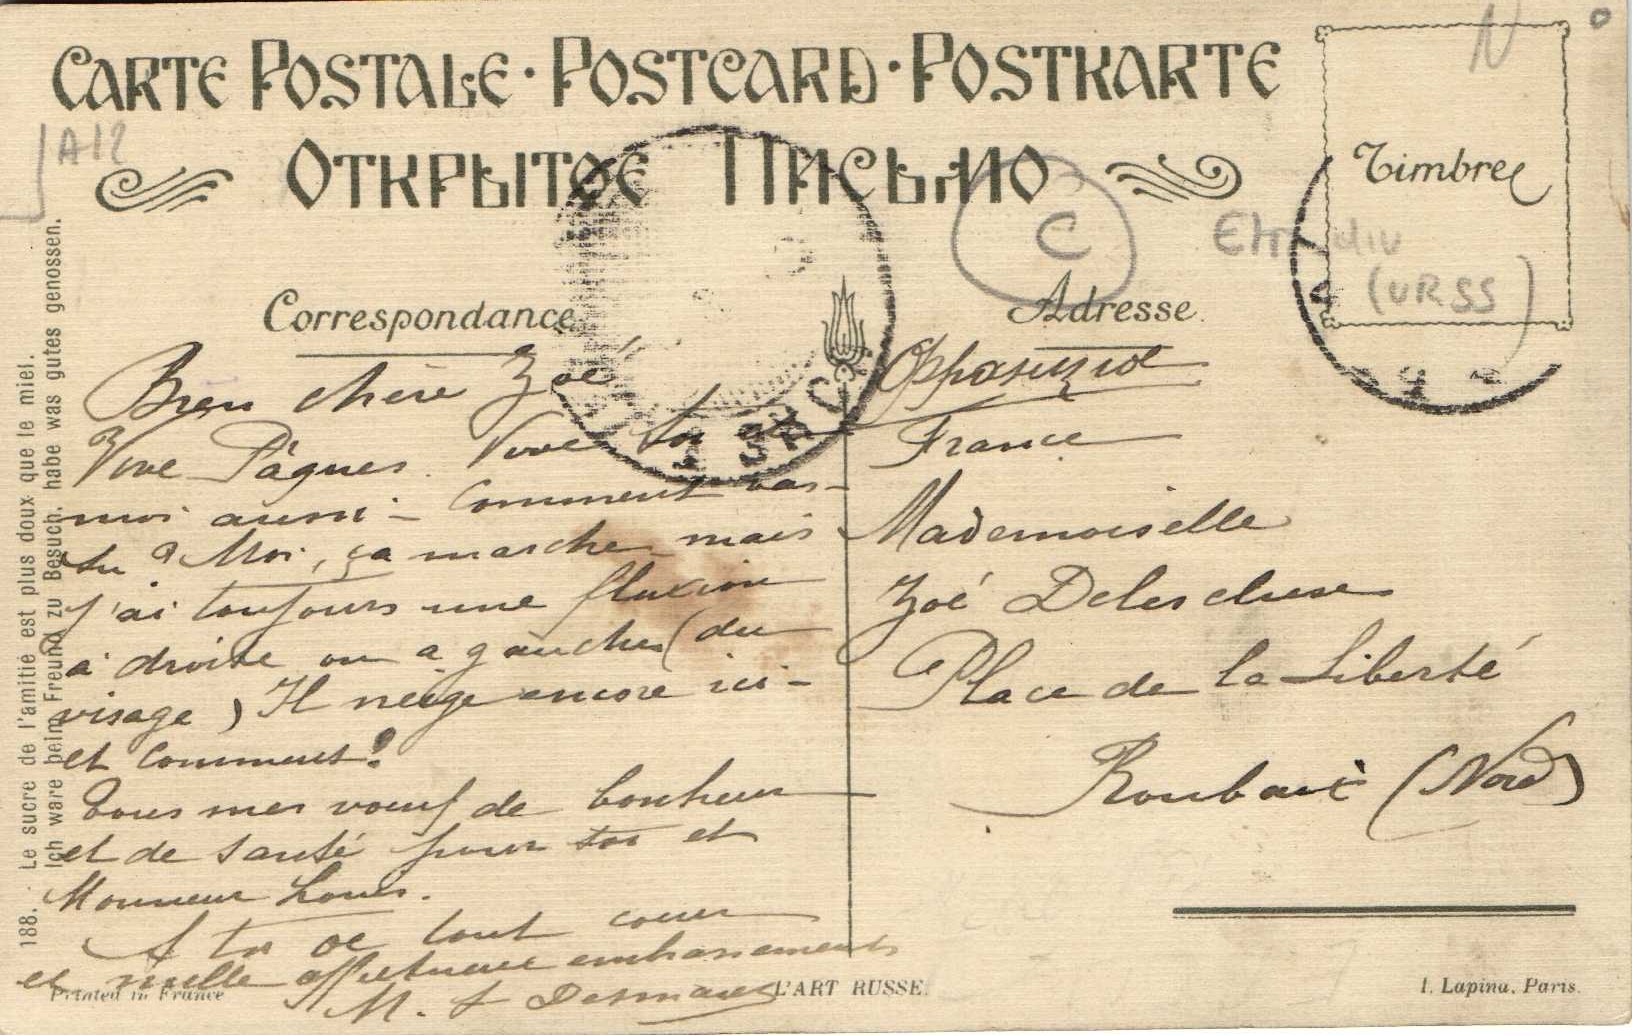 CARTE POSTALE · POSTCARD · POSTKARTE
ОТКРЫТОЕ ПИСЬМО
A12
N
Timbre
C
(URSS)
Correspondance
Adresse
Bien chère Zoé
Vive Pâques. Vive toi et
moi aussi - Comment vas-
tu ? Moi, ça marche mais
j'ai toujours une fluxion
à droite ou à gauche (du
visage) Il neige encore ici -
et comment !
Tous mes vœux de bonheur
et de santé pour toi et
Monsieur Louis.
A toi de tout cœur
et mille affectueux embrassements
M. L Desmarets
France
Mademoiselle
Zoé Delescluse
Place de la Liberté
Roubaix (Nord)
188. - Le sucre de l'amitié est plus doux que le miel.
Ich ware beim Freund zu Besuch, habe was gutes genossen.
Printed in France
L'ART RUSSE.
I. Lapina. Paris.